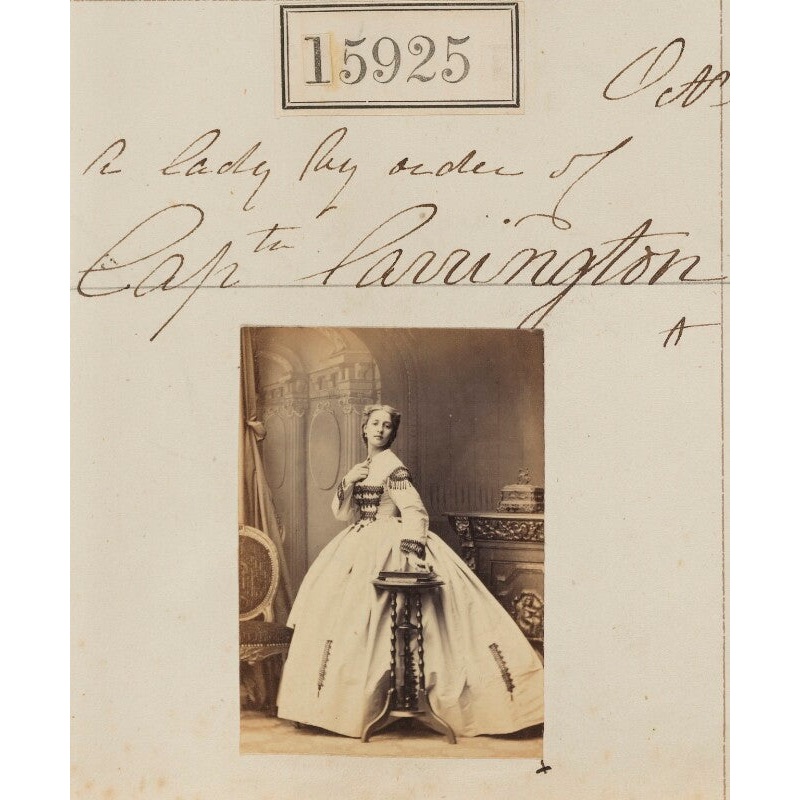 15925
a lady by order of
Captn Carrington
A